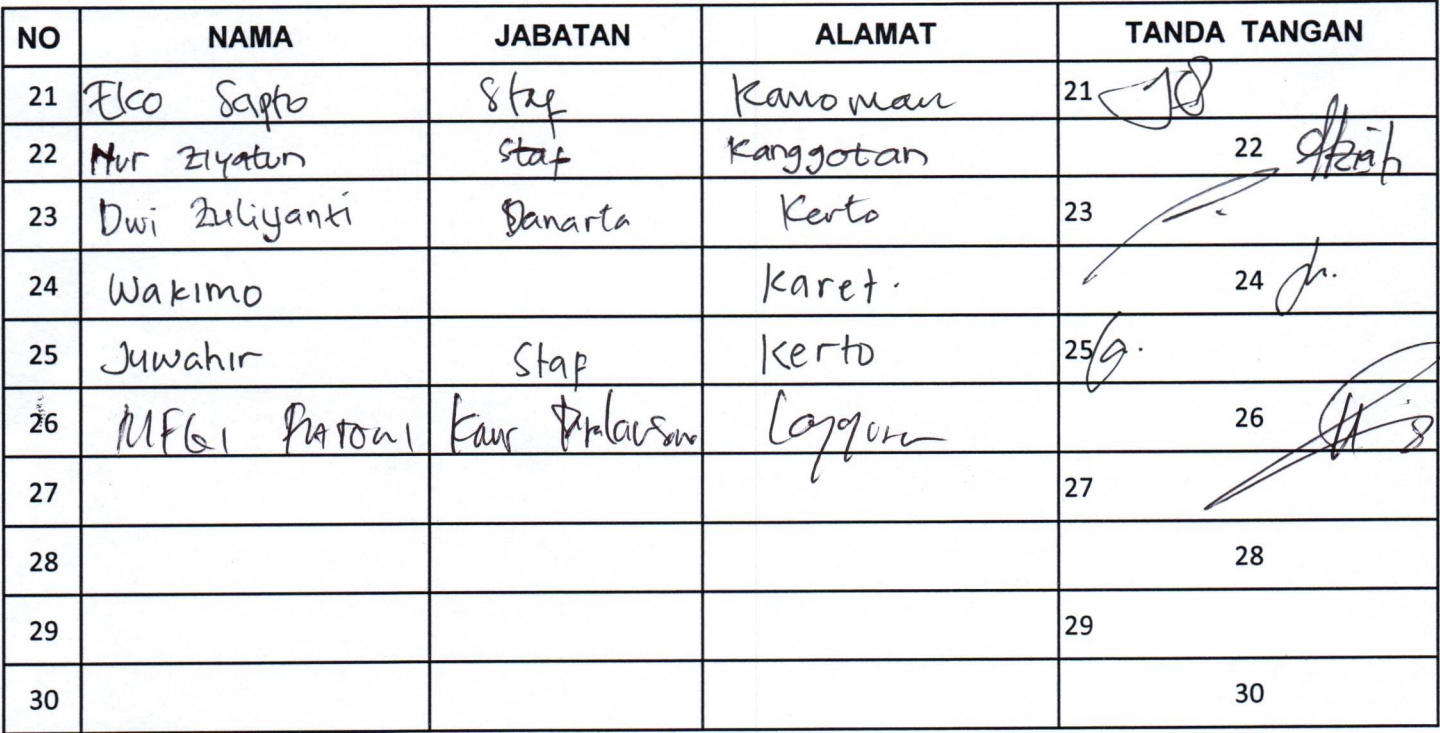 NO NAMA JABATAN ALAMAT TANDA TANGAN
21 Eko Sapto Staf Kanoman 21
22 Nur Ziyatun Staf Kanggotan 22
23 Dwi Zuliyanti Danarta Kerto 23
24 Wakimo Karet. 24
25 Juwahir Staf Kerto 25
26 Kaur 26
27 27
28 28
29 29
30 30